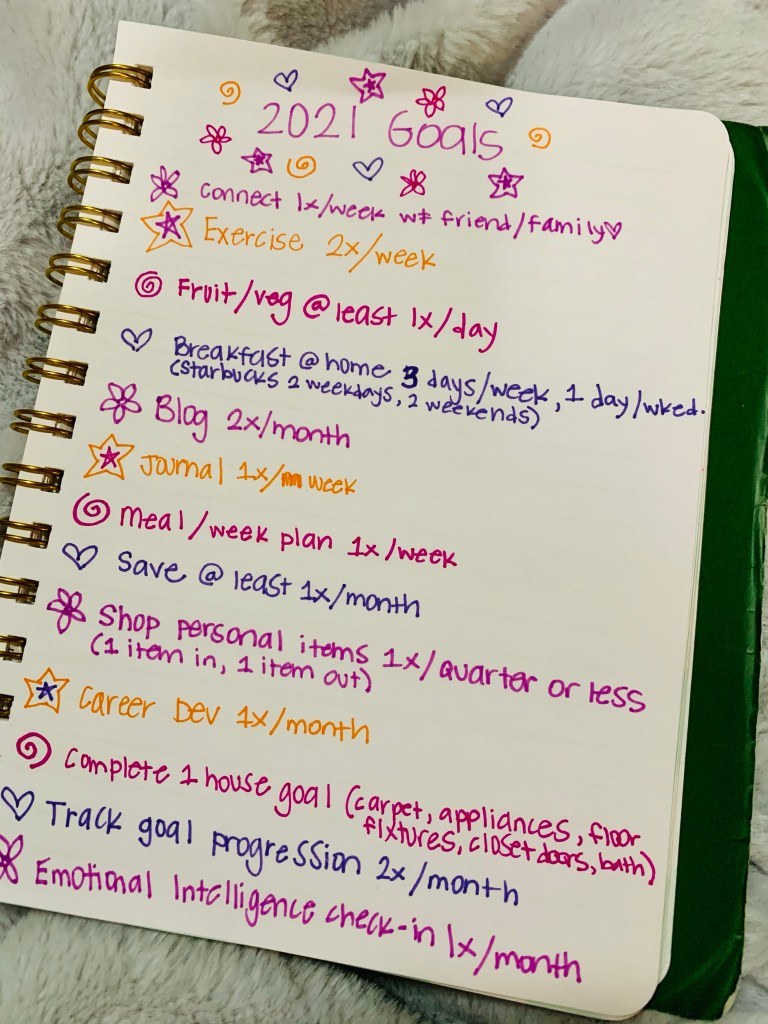 2021 Goals
connect 1x/week w/ friend/family♡
Exercise 2x/week
Fruit/veg @ least 1x/day
Breakfast @ home 3 days/week, 1 day/wked.
(Starbucks 2 weekdays, 2 weekends)
Blog 2x/month
Journal 1x/m week
Meal/week plan 1x/week
Save @ least 1x/month
Shop personal items 1x/quarter or less
(1 item in, 1 item out)
Career Dev 1x/month
Complete 1 house goal (carpet, appliances, floor
fixtures, closet doors, bath)
Track goal progression 2x/month
Emotional Intelligence check-in 1x/month